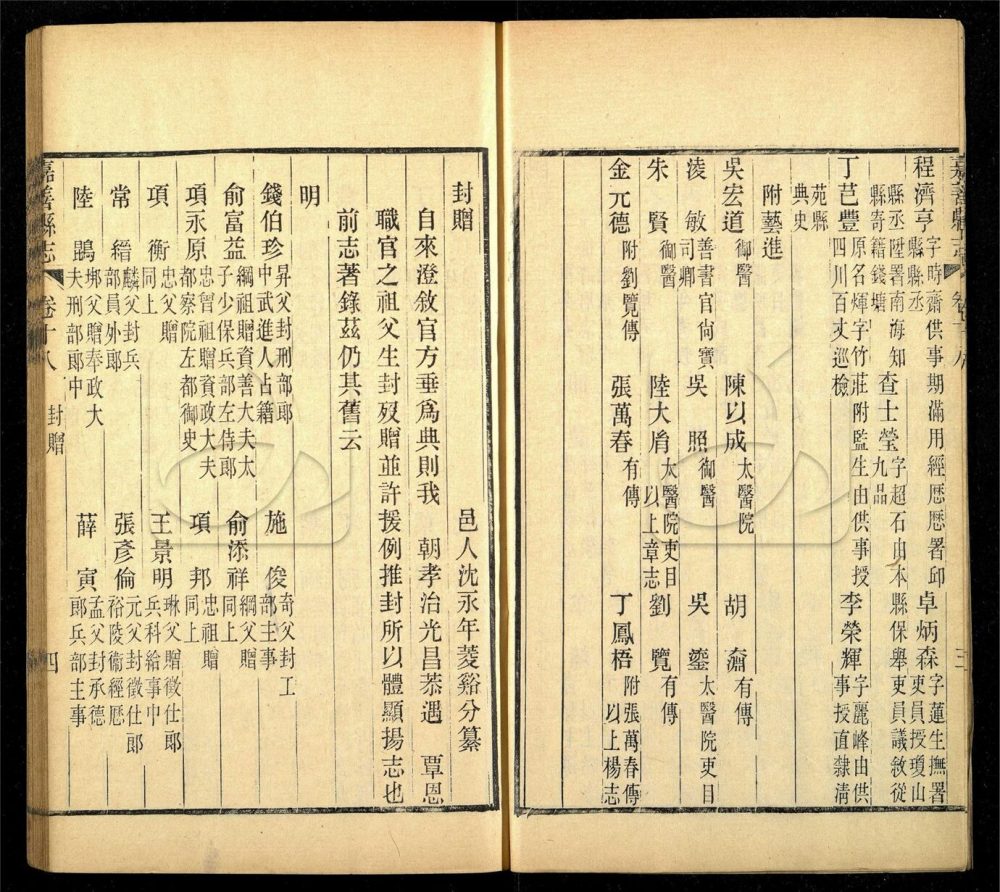 嘉善縣志 卷十八 三
程濟亨 字時齋供事期滿用經歷歷署邱 縣縣丞 卓炳森 字蓮生撫署 吏員授瓊山
縣丞陞署南海知 縣寄籍錢塘 查士瑩 字超石由本縣保舉吏員議敘從 九品
丁芑豐 原名煇字竹莊附監生由供事授 四川百丈巡檢 李榮輝 字麗峰由供 事授直隸清
苑縣 典史
附藝進
吳宏道 御醫 陳以成 太醫院 胡奫 有傳
淩敏 善書官尚寶 司卿 吳照 御醫 吳鎏 太醫院吏目
朱賢 御醫 陸大肩 太醫院吏目 以上章志 劉覽 有傳
金元德 附劉覽傳 張萬春 有傳 丁鳳梧 附張萬春傳 以上楊志
封贈 邑人沈永年菱谿分纂
自來澄敘官方垂為典則我 朝孝治光昌恭遇 覃恩
職官之祖父生封歿贈並許援例推封所以體顯揚志也
前志著錄茲仍其舊云
明
錢伯珍 昇父封刑部郎 中武進人占籍 施俊 奇父封工 部主事
俞富益 綱祖贈資善大夫太 子少保兵部左侍郎 俞添祥 綱父贈 同上
項永原 忠曾祖贈資政大夫 都察院左都御史 項邦 忠祖贈 同上
項衡 忠父贈 同上 王景明 琳父贈徵仕郎 兵科給事中
常縉 麟父封兵 部員外郎 張彥倫 元父封徵仕郎 裕陵衛經歷
陸鵾 垹父贈奉政大 夫刑部郎中 薛寅 孟父封承德 郎兵部主事
嘉善縣志 卷十八 封贈 四